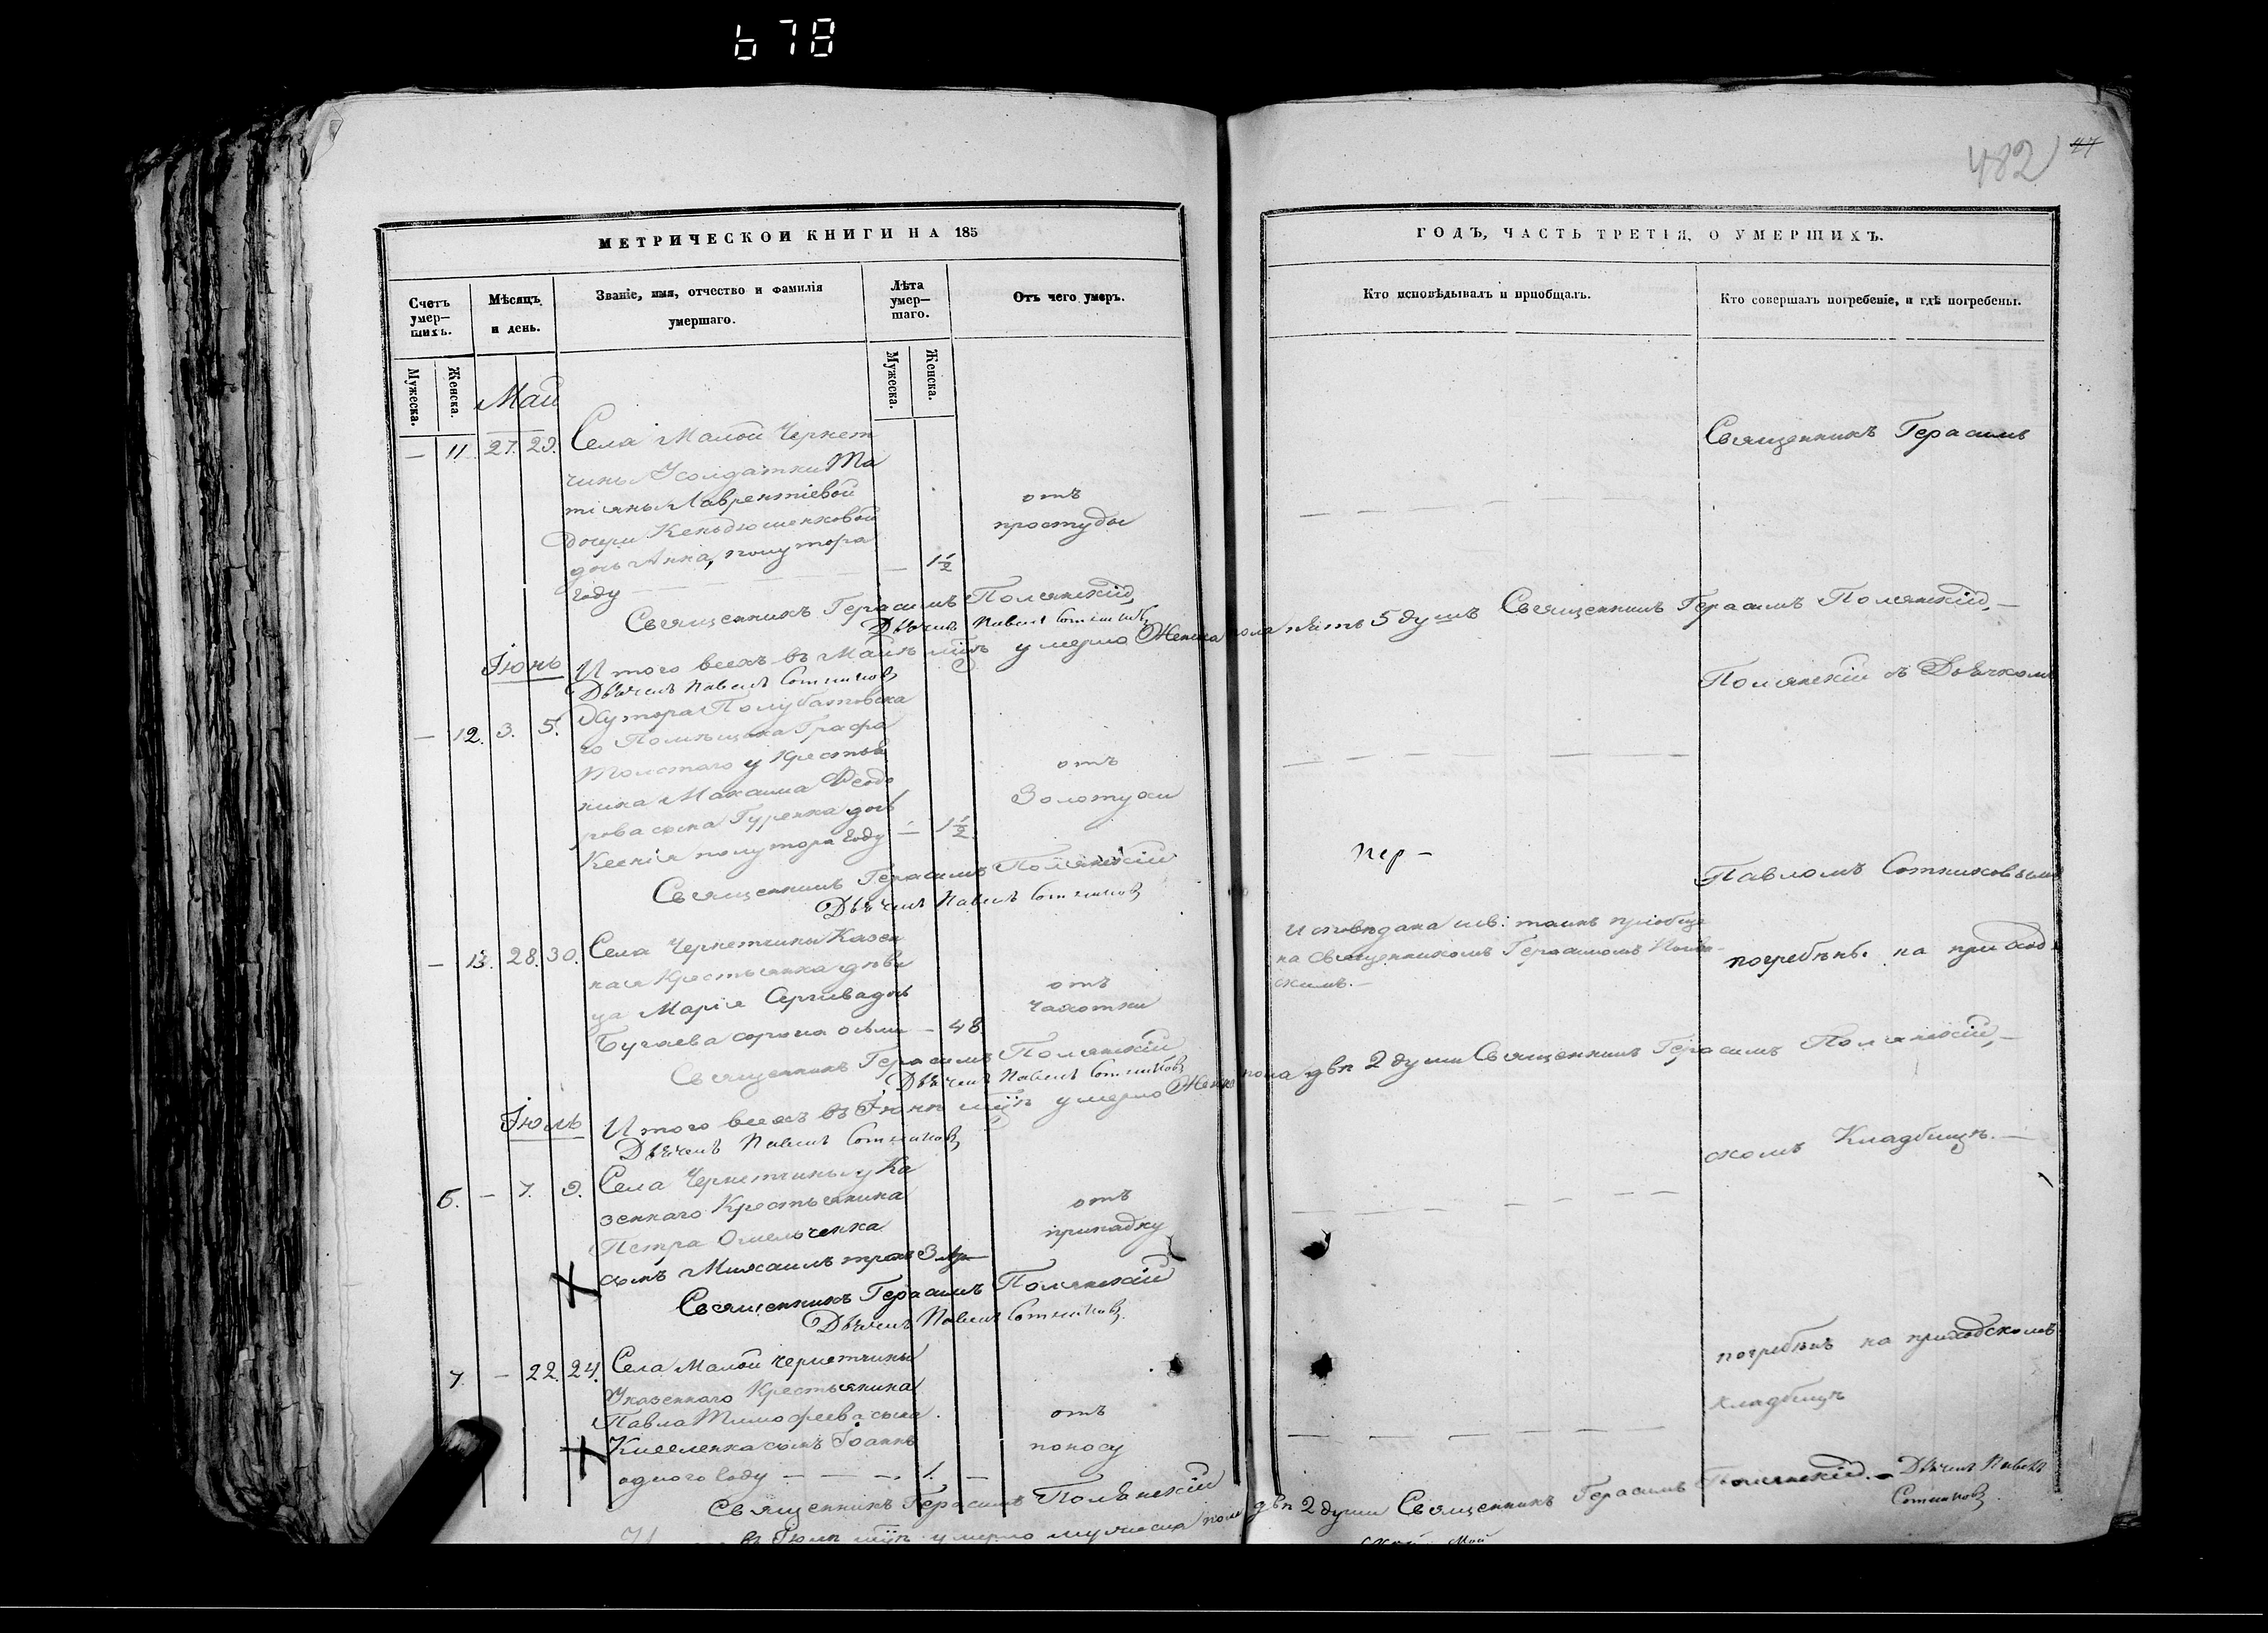 678
482
47
МЕТРИЧЕСКОЙ КНИГИ НА 185
Счетъ умер—шихъ.
Мѣсяцъ и день.
Званіе, имя, отчество и фамилія умершаго.
Лѣта умер—шаго.
Отъ чего умеръ.
Мужеска.
Женска.
Мужеска.
Женска.
Май
— 11 27. 29. Села Малой Чернет
чины Усолдатки Та
тіяны Лаврентіевой
дочери
дочь Анна, полутора
году — 1½
отъ
простуды
Священникъ Герасимъ Полянскій,
Дьячекъ Павелъ Сотниковъ
Итого всехъ въ Маѣ мцѣ умерло Женска пола пять 5 душъ Священникъ Герасимъ Полянскій, —
Дьячекъ Павелъ Сотниковъ
Іюнь
— 12. 3. 5. Хутора Полубатовска
го Помѣщика Графа
Толстаго у Крестья
нина Максима Феодо
рова сына Гуренка дочь
Ксенія полутора году — 1½.
отъ
Золотухи
Священникъ Герасимъ Полянскій
Дьячекъ Павелъ Сотниковъ
— 13. 28. 30. Села Чернетчины Казен
ная Крестьянка дѣви
ца Марія Сергѣева дочь
Бугаева сорока осьми — 48.
отъ
чахотки
Священникъ Герасимъ Полянскій
Дьячекъ Павелъ Сотниковъ
Итого всехъ въ Іюнѣ мцѣ умерло Женска пола двѣ 2 души Священникъ Герасимъ Полянскій, —
Дьячекъ Павелъ Сотниковъ
Іюль
6. — 7. 9. Села Чернетчины у Ка
зеннаго Крестьянина
Петра Омельченка
сынъ Михаилъ трехъ 3
отъ
припадку
Священникъ Герасимъ Полянскій
Дьячекъ Павелъ Сотниковъ
7. — 22. 24. Села Малой Чернетчины
Указеннаго Крестьянина
Павла Тимофеева сына
Киселенка сынъ Іоаннъ
одного году — — —. 1. —
отъ
поносу
Священникъ Герасимъ Полянскій
въ Іюлѣ мцѣ умерло мужеска пола двѣ 2 души Священникъ Герасимъ Полянскій. — Дьячекъ Павелъ
Сотниковъ
ГОДЪ, ЧАСТЬ ТРЕТІЯ, О УМЕРШИХЪ.
Кто исповѣдывалъ и пріобщалъ.
Кто совершалъ погребеніе, и гдѣ погребены.
пер —
Исповѣдана и св: таинъ пріобще
на Священникомъ Герасимомъ Полян—
скимъ. —
Священникъ Герасимъ
Полянскій съ Дьячкомъ
Павломъ Сотниковымъ
погребены на приход
скомъ Кладбищѣ. —
погребенъ на приходскомъ
кладбищѣ